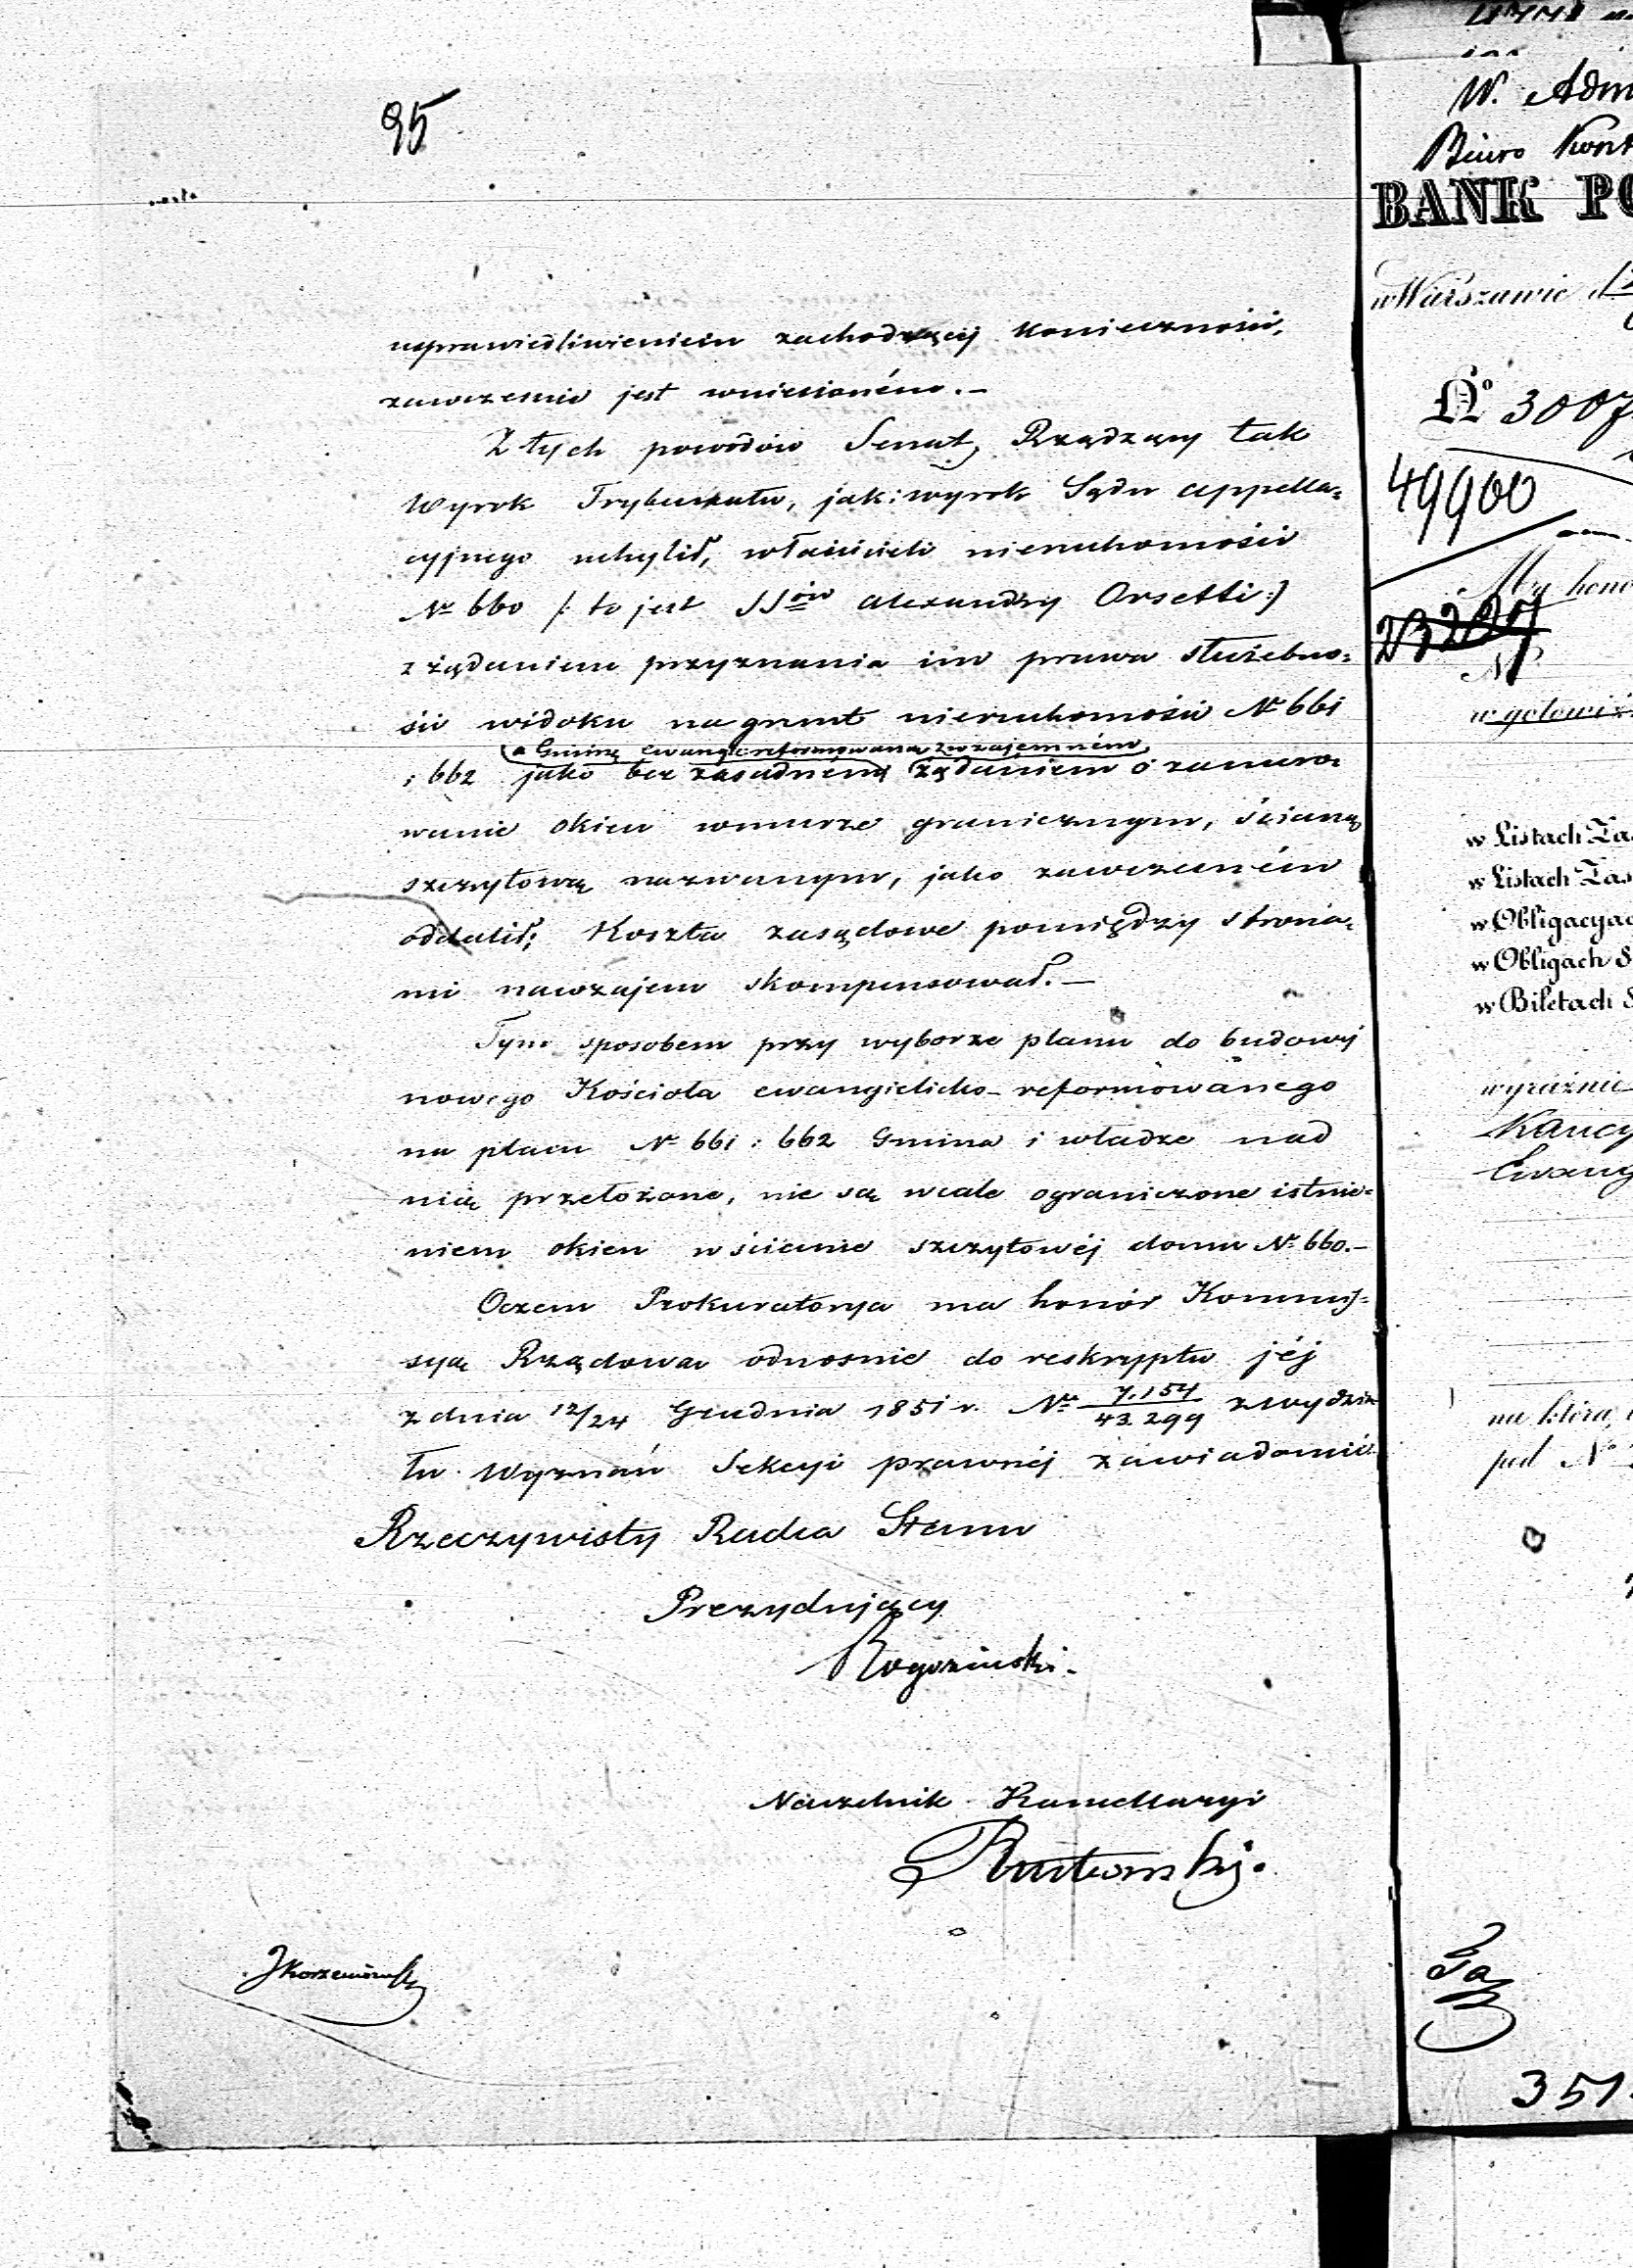 95
usprawiedliwieniem zachodzącéj konieczności,
zawcześnie jest wniesioném.—
Z tych powodów Senat Rządzący tak
Wyrok Trybunału, jak i wyrok Sądu Appella=
cyjnego uchylił, właścicieli nieruchomości
№ 660 /: to jest SSów Alexandry Orsetti :/
z żądaniem przyznania im prawa służebno=
ści widoku na grunt nieruchomości № 661
a Gminę ewang: reformowaną z wzajemném
i 662 jako bezzasadném żądaniem o zamuro=
wanie okien w murze granicznym, ścianą
szczytową nazwanym, jako zawczesném
oddalił; Koszta zasądowe pomiędzy strona=
mi nawzajem skompensował.—
Tym sposobem przy wyborze planu do budowy
nowego Kościoła ewangielicko-reformowanego
na placu № 661 i 662 Gmina i władze nad
nią przełożone, nie są wcale ograniczone istnie=
niem okien w ścianie szczytowéj domu № 660.—
O czem Prokuratorya ma honór Kommis=
syą Rządową odnośnie do reskryptu jéj
z dnia 12/24 Grudnia 1851 r. № 7.154/43.299 z wydzia
łu Wyznań Sekcyi prawnéj zawiadomić.
Rzeczywisty Radca Stanu
Prezydujący
Rogoziński.
Naczelnik Kancellaryi
Rutkowski.
JKorzeniowski
W. Adm
Biuro Kont
BANK PO
w Warszawie d
№ 3007
49900
My hono
23209
w gotowiź
w Listach Za
w Listach Zas
w Obligacyac
w Obligach S
w Biletach S
wyraźnie
Kaucy
Ewang
na którą
pod №
351